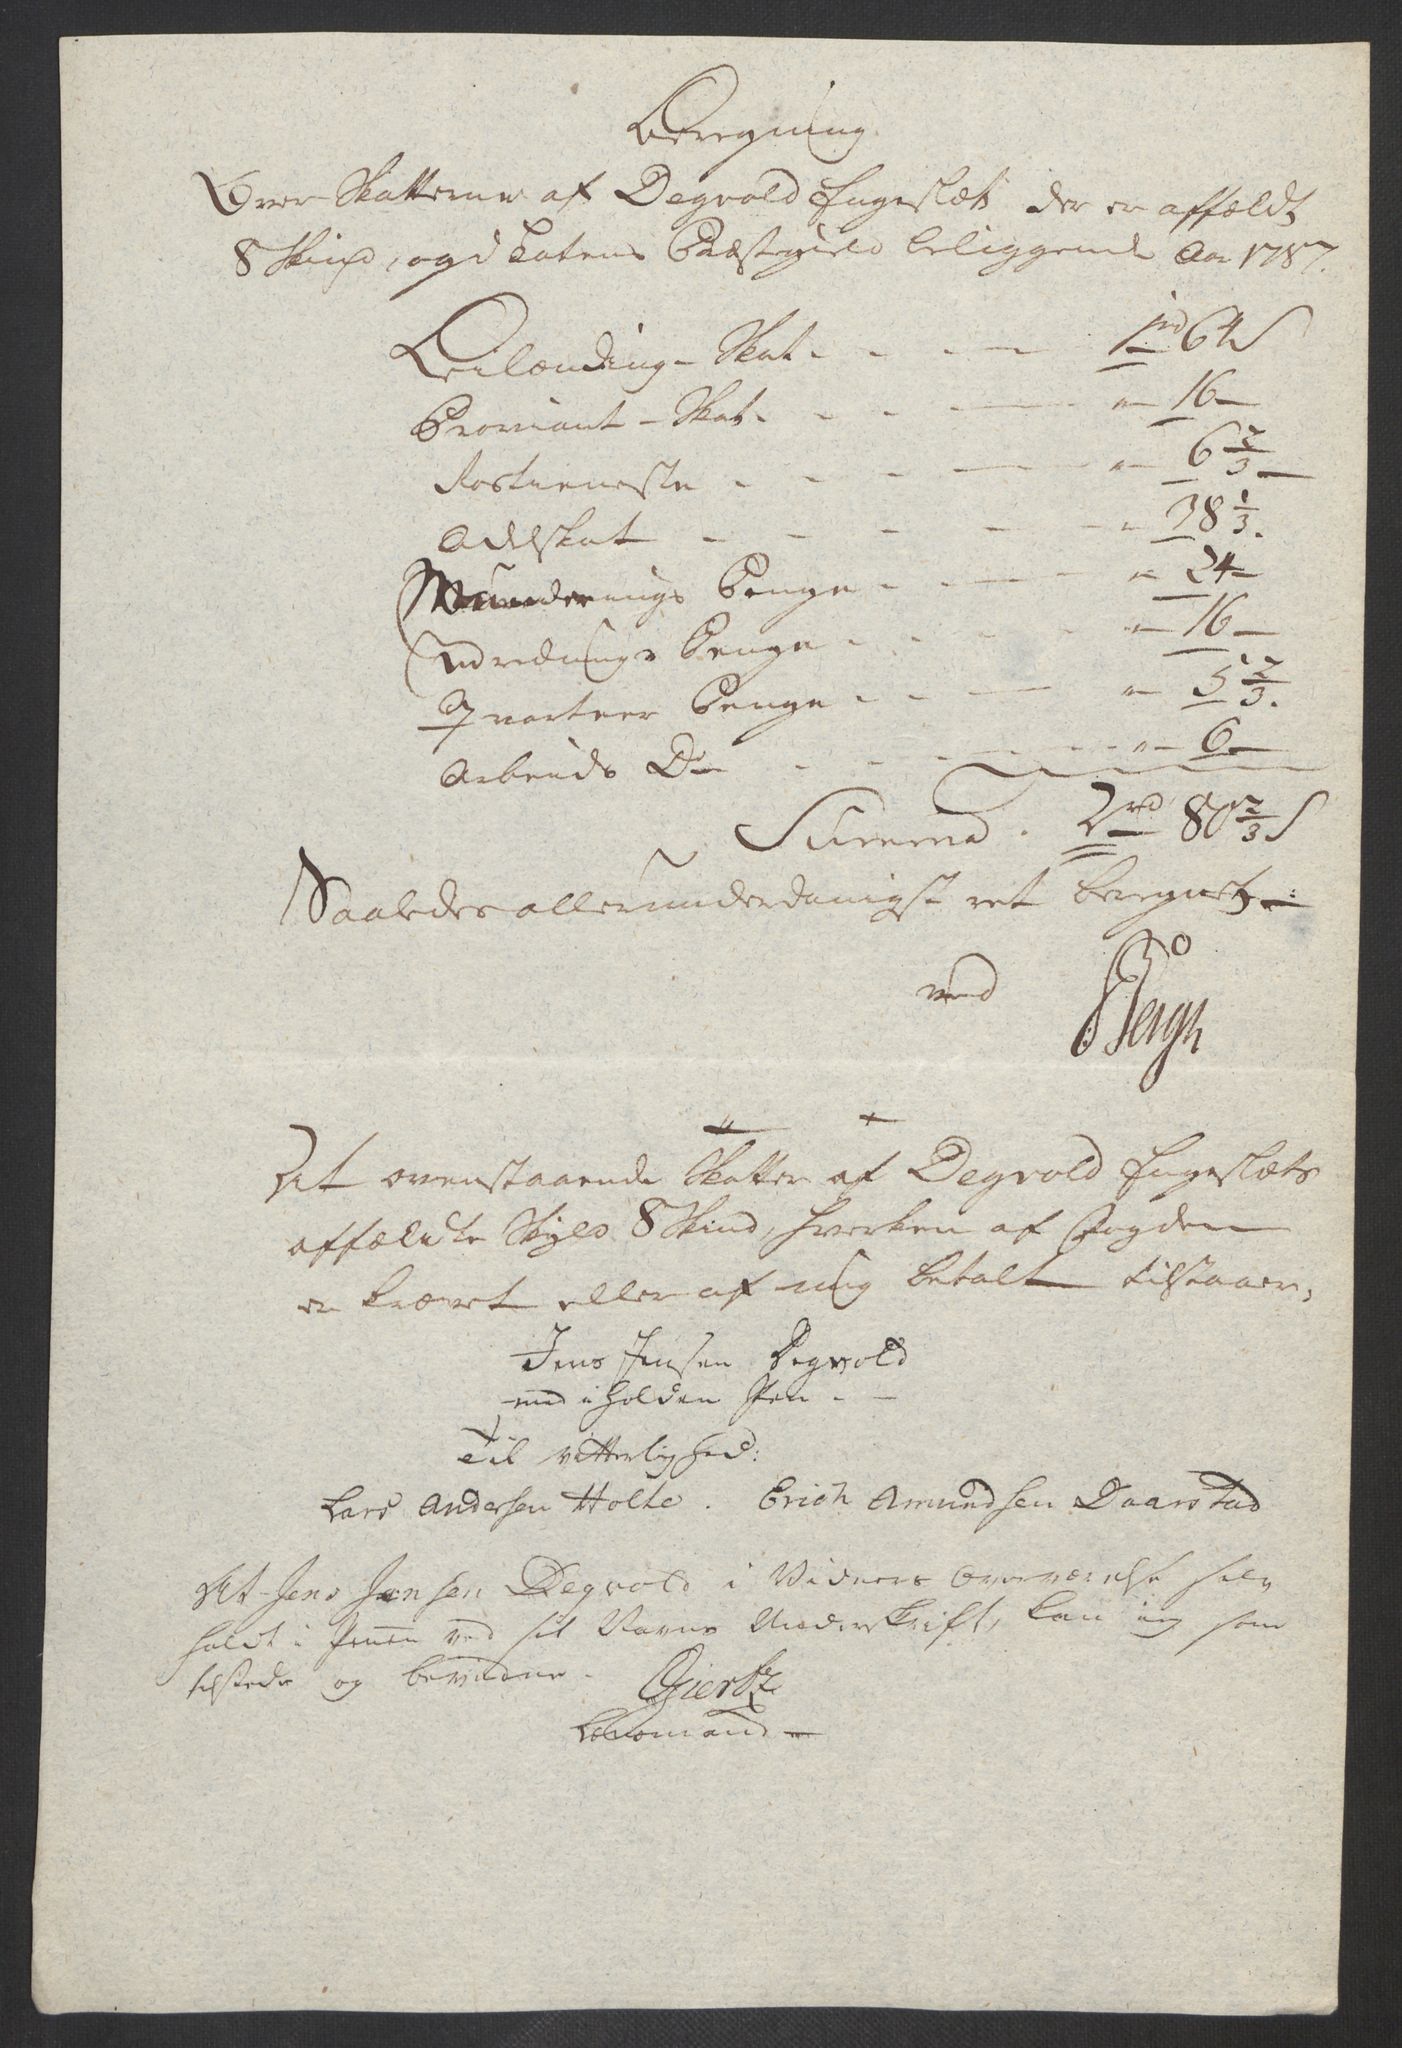 Beregning
Over Skatterne af Degvold Engeslæt der er affældt
8 Skind, og i Totens Præstegield beliggende Aar 1787.
Leilænding-Skat - - - 1 rd 64 s
Proviant-Skat - - - " 16 -
Rostieneste - - - " 6 2/3 -
Adelskat - - - " 38 1/3.
Munderings Penge - - - " 24 -
Udrednings Penge - - - " 16 -
Qvarteer Penge - - - " 5 2/3.
Arbeids D - - - " 6 -
Summa . 2 rd 80 2/3 s
Saaledes allerunderdanigst ret beregnet
ved Bergh
At ovenstaaende Skatter af Degvold Engeslæts
affældte Skyld 8 Skind, hverken af Fogden
er krævet eller af mig betalt tilstaaer,
Jens Jensen Degvold
med iholden Pen - -
Til vitterlighed:
Lars Andersen Holte . Erich Amundsen Daarstad
At Jens Jensen Degvold i Vidners Overværelse selv
holdt i Pennen ved sit Navns Underskrift, kan ieg som
tilstede og bevidne -
Giertz
Lensmand -